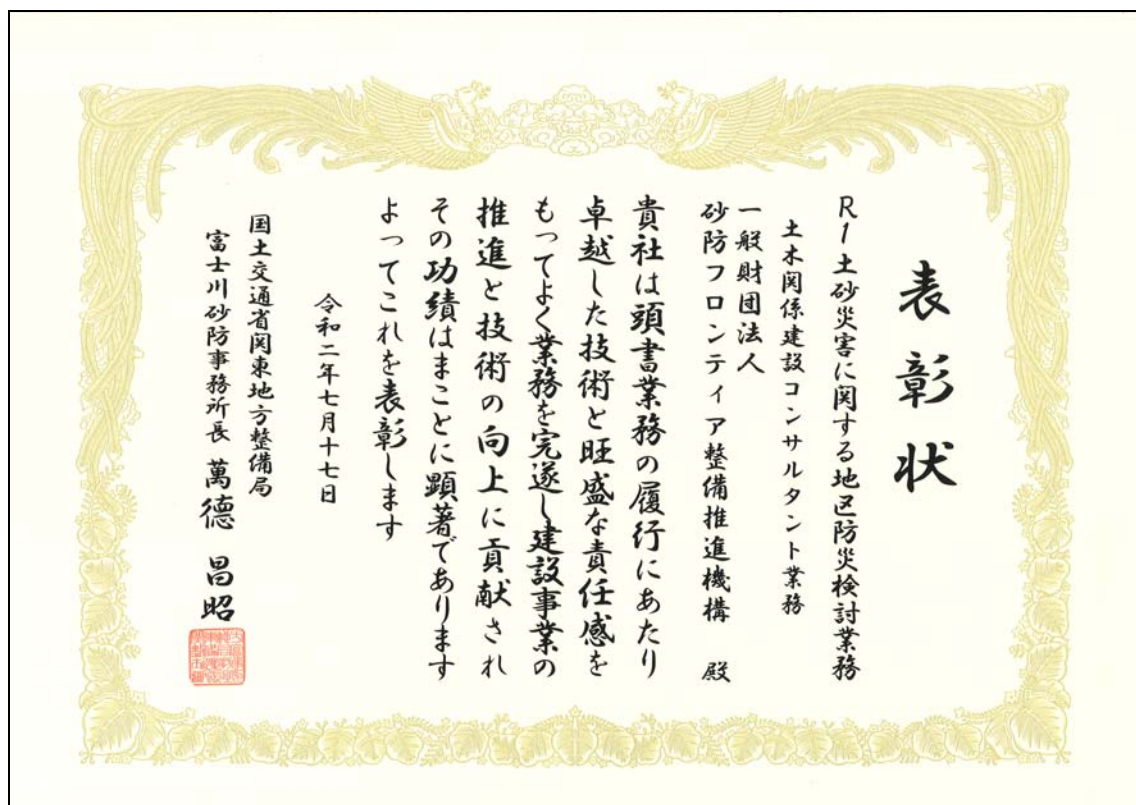 表彰状
R1土砂災害に関する地区防災検討業務
土木関係建設コンサルタント業務
一般財団法人
砂防フロンティア整備推進機構 殿
貴社は頭書業務の履行にあたり
卓越した技術と旺盛な責任感を
もってよく業務を完遂し建設事業の
推進と技術の向上に貢献され
その功績はまことに顕著であります
よってこれを表彰します
令和二年七月十七日
国土交通省関東地方整備局
富士川砂防事務所長 萬徳 昌昭